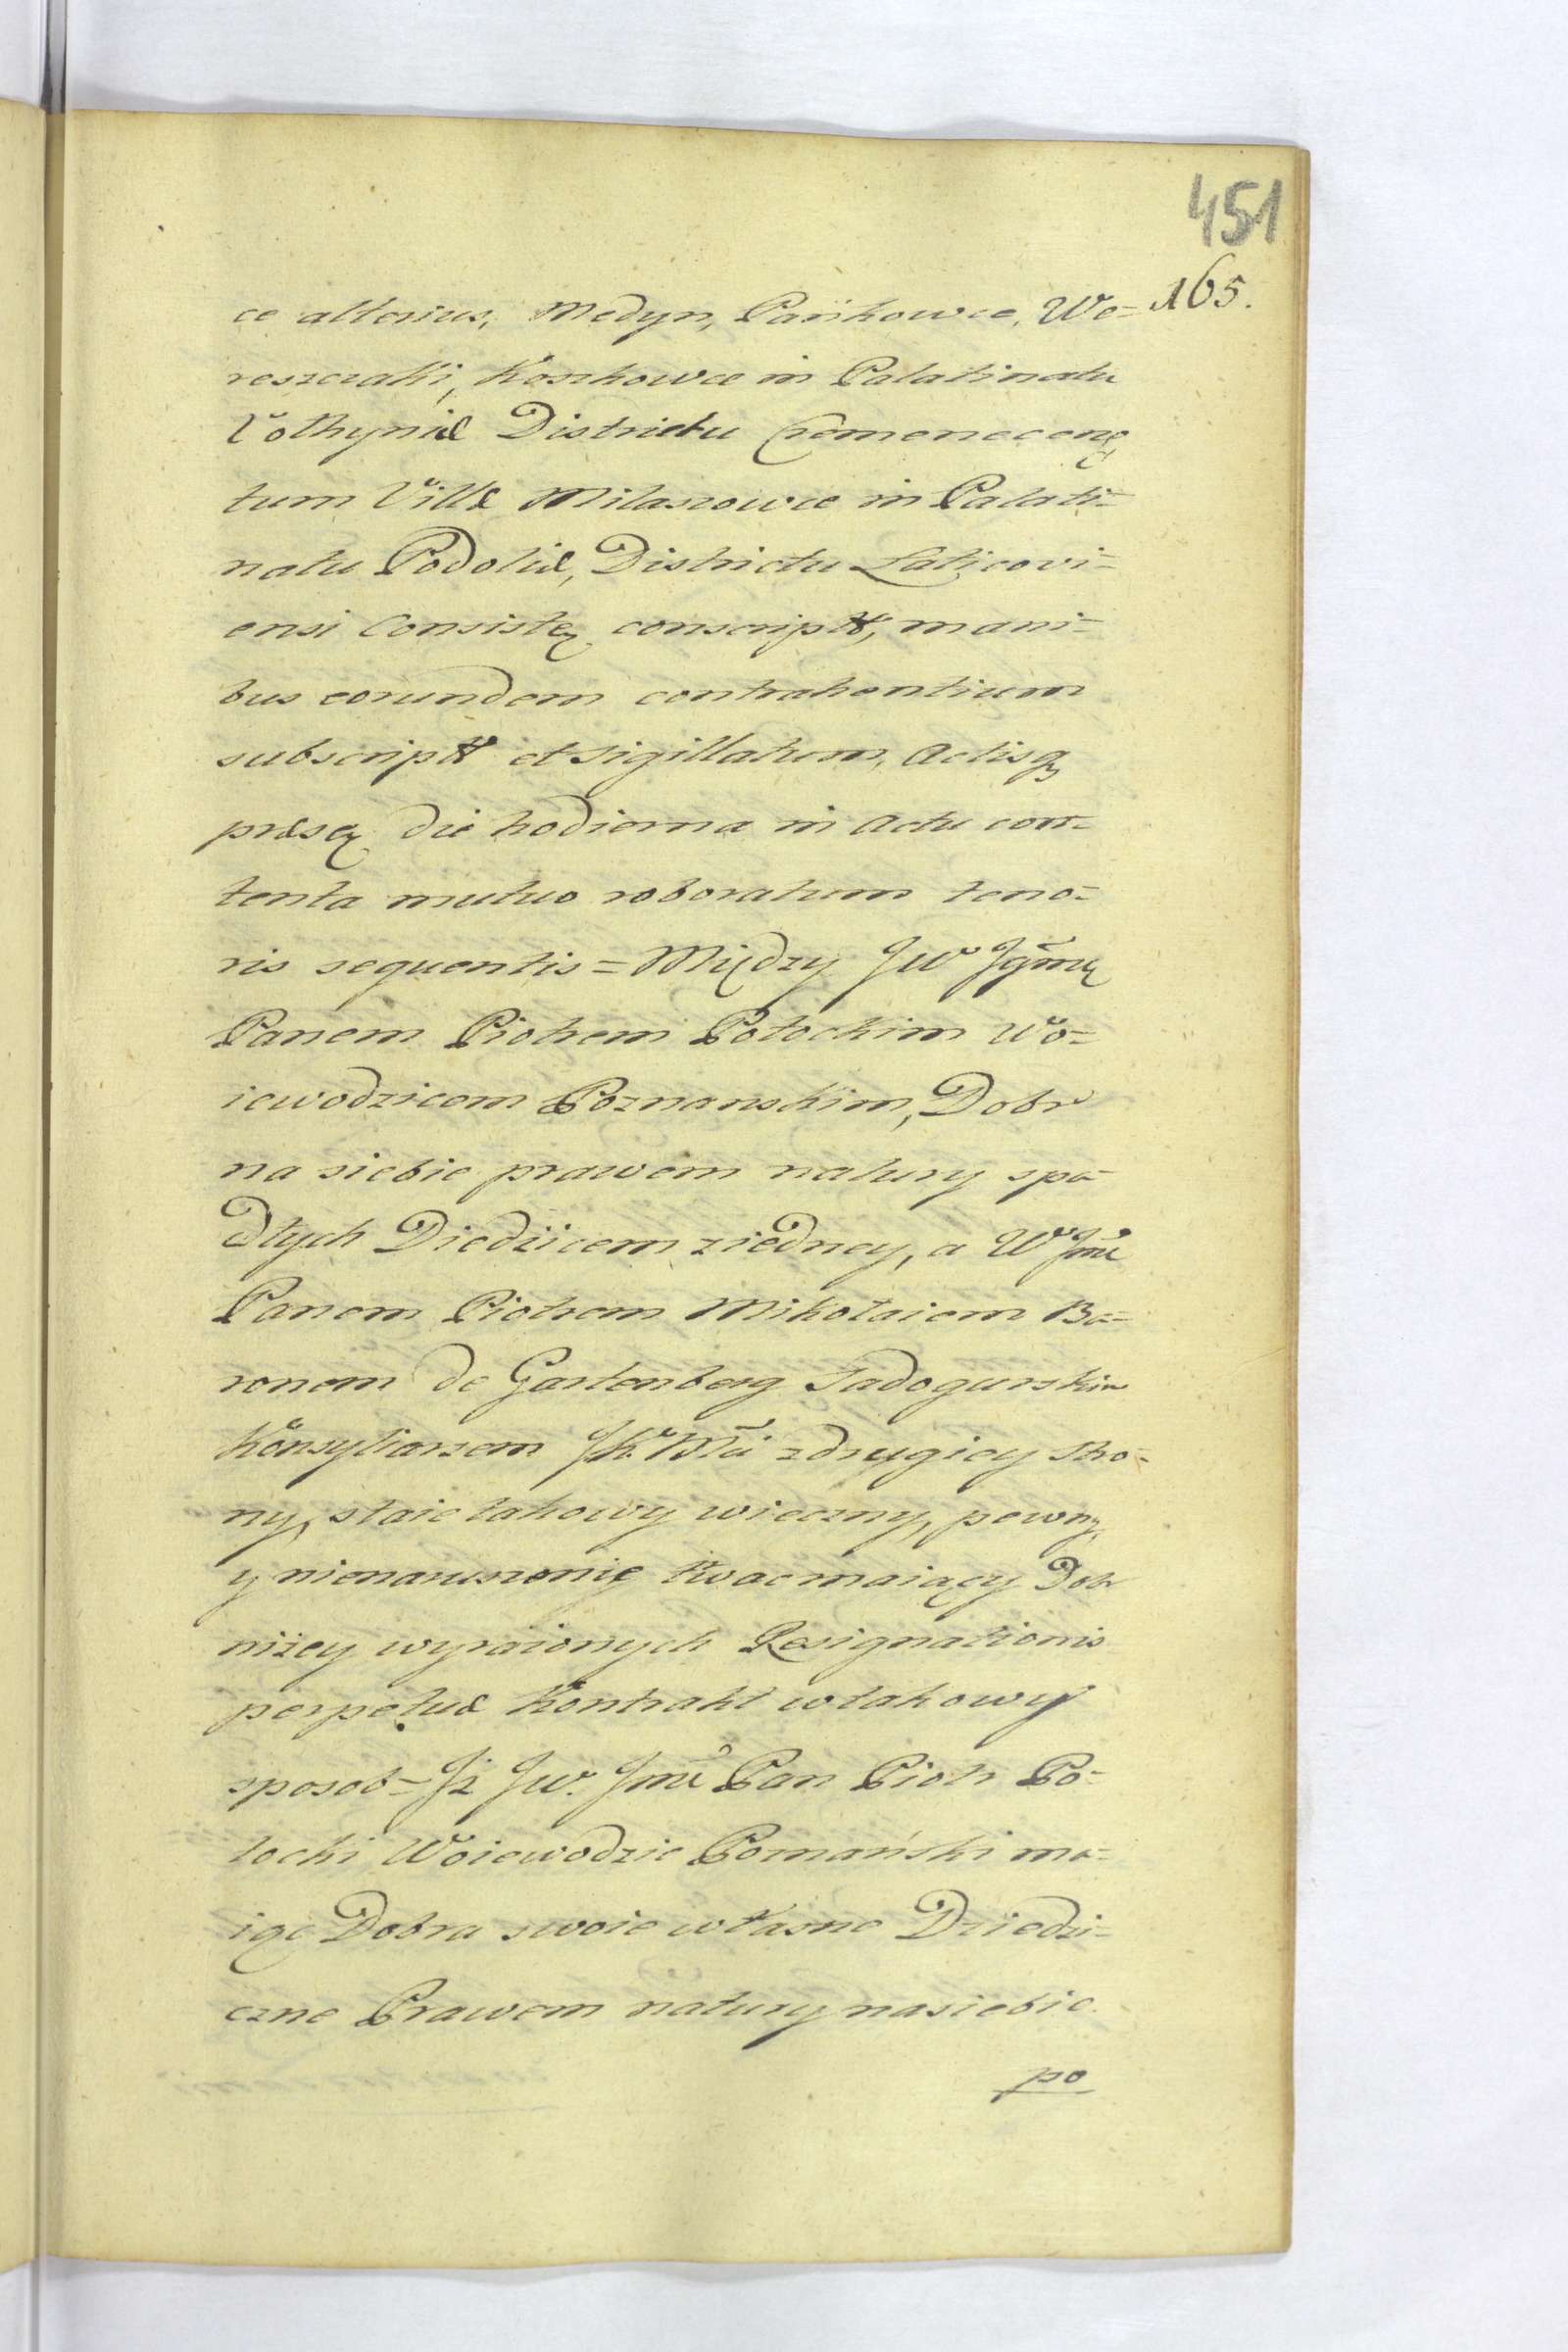 451
165.
ce alterius, Medyn, Pańkowce, We-
reszczaki, Koszkowce in Palatinatu
Volhyniæ Districtu Cremenecenꝫ
tum Villæ Milaszowce in Palati-
natu Podoliæ, Districtu Laticovi-
ensi Consisteꝫ conscriptꝫ, mani-
bus eorundem contrahentium
subscriptꝫ et sigillatum, Actisqꝫ
præseꝫ die hodierna in Actu con-
tenta mutuo roboratum teno-
ris sequentis = Między JW Jgmę
Panem Piotrem Potockim Wo-
iewodzicem Poznanskim, Dobr
na siebie prawem natury spa-
dłych Diedzicem ziedney, a W Jmć
Panem Piotrem Mikołaiem Ba-
ronem de Gartenberg Sadogurskim
Konsyliarzem JK Mći zdrugiey stro-
ny, staie takowy wieczny, pewny,
y nienaruszenie trwac maiący Dobr
niżey wyrażonych Resignationis
perpetuæ Kontrakt wtakowy
sposob = Jż JW. Jmć Pan Piotr Po-
tocki Woiewodzic Poznański ma-
iąc Dobra swoie własne Dziedzi-
czne Prawem natury nasiebie
po